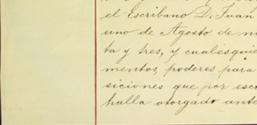 el Escribano D. Juan
uno de Agosto de mi
ta y tres, y cualesqui
mentos, poderes para
siciones que por escr
halla otorgado ante